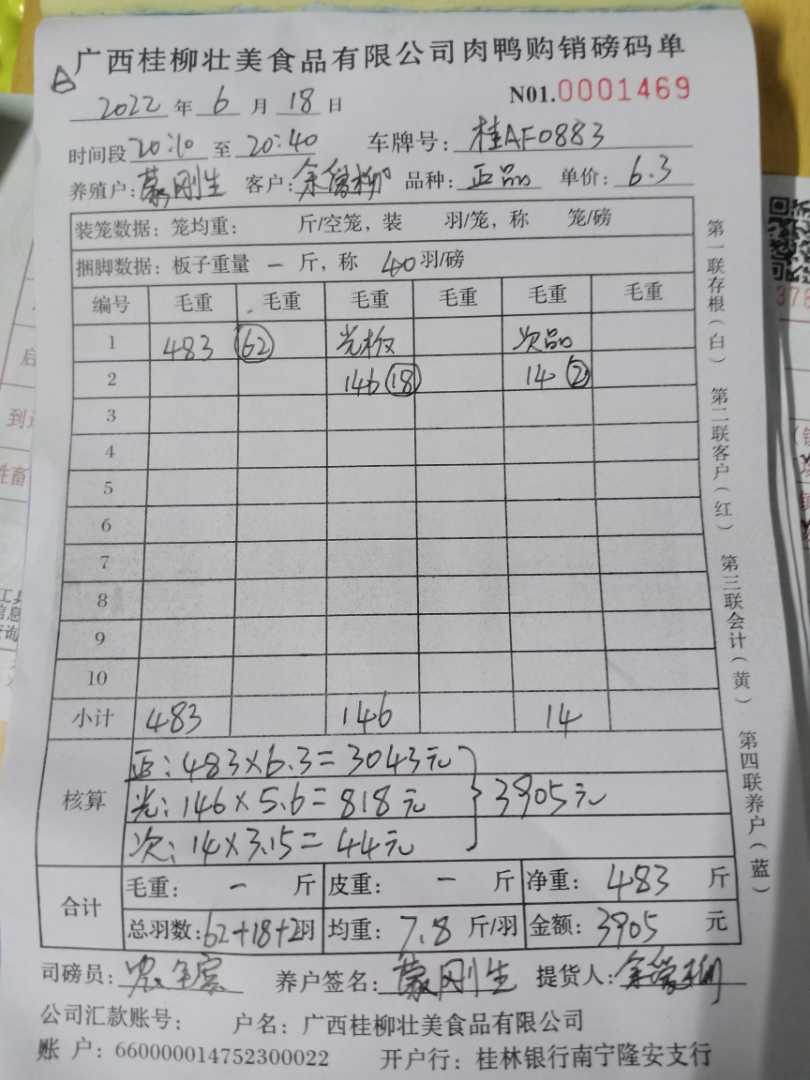 广西桂柳壮美食品有限公司肉鸭购销磅码单
2022年6月18日 N01.0001469
时间段20:10至20:40 车牌号:桂AF0883
养殖户:蒙刚生 客户: 品种:正品 单价:6.3
装笼数据:笼均重: 斤/空笼,装 羽/笼,称 笼/磅
捆脚数据:板子重量 一 斤,称 40羽/磅
编号 毛重 毛重 毛重 毛重 毛重 毛重
1 483 62 光板 次品
2 146 18 14 2
3
4
5
6
7
8
9
10
小计 483 146 14
核算
正:483×6.3=3043元
光:146×5.6=818元
次:14×3.15=44元
3905元
合计
毛重: 一 斤 皮重: 一 斤 净重: 483 斤
总羽数:62+18+2羽 均重:7.8斤/羽 金额:3905 元
司磅员: 养户签名:蒙刚生 提货人:
公司汇款账号: 户名:广西桂柳壮美食品有限公司
账 户:660000014752300022 开户行:桂林银行南宁隆安支行
第一联存根(白) 第二联客户(红) 第三联会计(黄) 第四联养户(蓝)